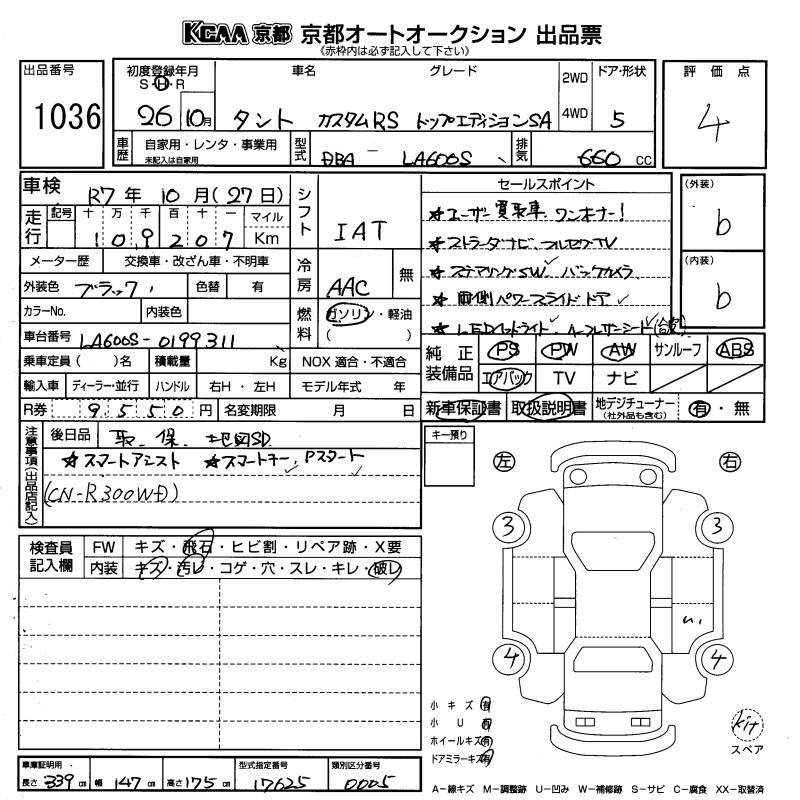 KCAA 京都 京都オートオークション 出品票
(赤枠内は必ず記入して下さい)
出品番号 1036
初度登録年月 S・H・R 26 10月
車名 グレード タント カスタムRS トップエディションSA
2WD 4WD
ドア・形状 5
評価点 4
車歴 自家用・レンタ・事業用 未記入は自家用
型式 DBA - LA600S
排気 660 CC
車検 R7年 10月(27日)
シフト IAT
走行 記号 十 万 千 百 十 一 マイル
109207 Km
メーター歴 交換車・改ざん車・不明車
冷房 AAC 無
外装色 ブラック 色替 有
カラーNo. 内装色
燃料 ガソリン・軽油 ( )
車台番号 LA600S-0199311
乗車定員( )名 積載量 Kg NOX 適合・不適合
輸入車 ディーラー・並行 ハンドル 右H・左H モデル年式 年
R券 9550円 名変期限 月 日
セールスポイント
★ユーザー買取車 ワンオーナー!
★ストラーダナビ フルセグTV
★ステアリングSW バックカメラ
★両側パワースライドドア
★LEDヘッドライト
(外装) b
(内装) b
純正装備品 PS PW AW サンルーフ ABS
エアバック TV ナビ
新車保証書 取扱説明書 地デジチューナー (社外品も含む) 有・無
注意事項(出品店記入)
後日品 取、保、地図SD
★スマートアシスト ★スマートキー、Pスタート
(CN-R300WD)
キー預り
左 右
検査員記入欄
FW キズ・飛石・ヒビ割・リペア跡・X要
内装 キズ・汚レ・コゲ・穴・スレ・キレ・破レ
3 3
4 4
小キズ 有
小U 有
ホイールキズ 有
ドアミラーキズ 有
kit
スペア
車庫証明用・ 長さ 339cm 幅 147cm 高さ 175cm
型式指定番号 17625
類別区分番号 0005
A−線キズ M−調整跡 U−凹み W−補修跡 S−サビ C−腐食 XX−取替済